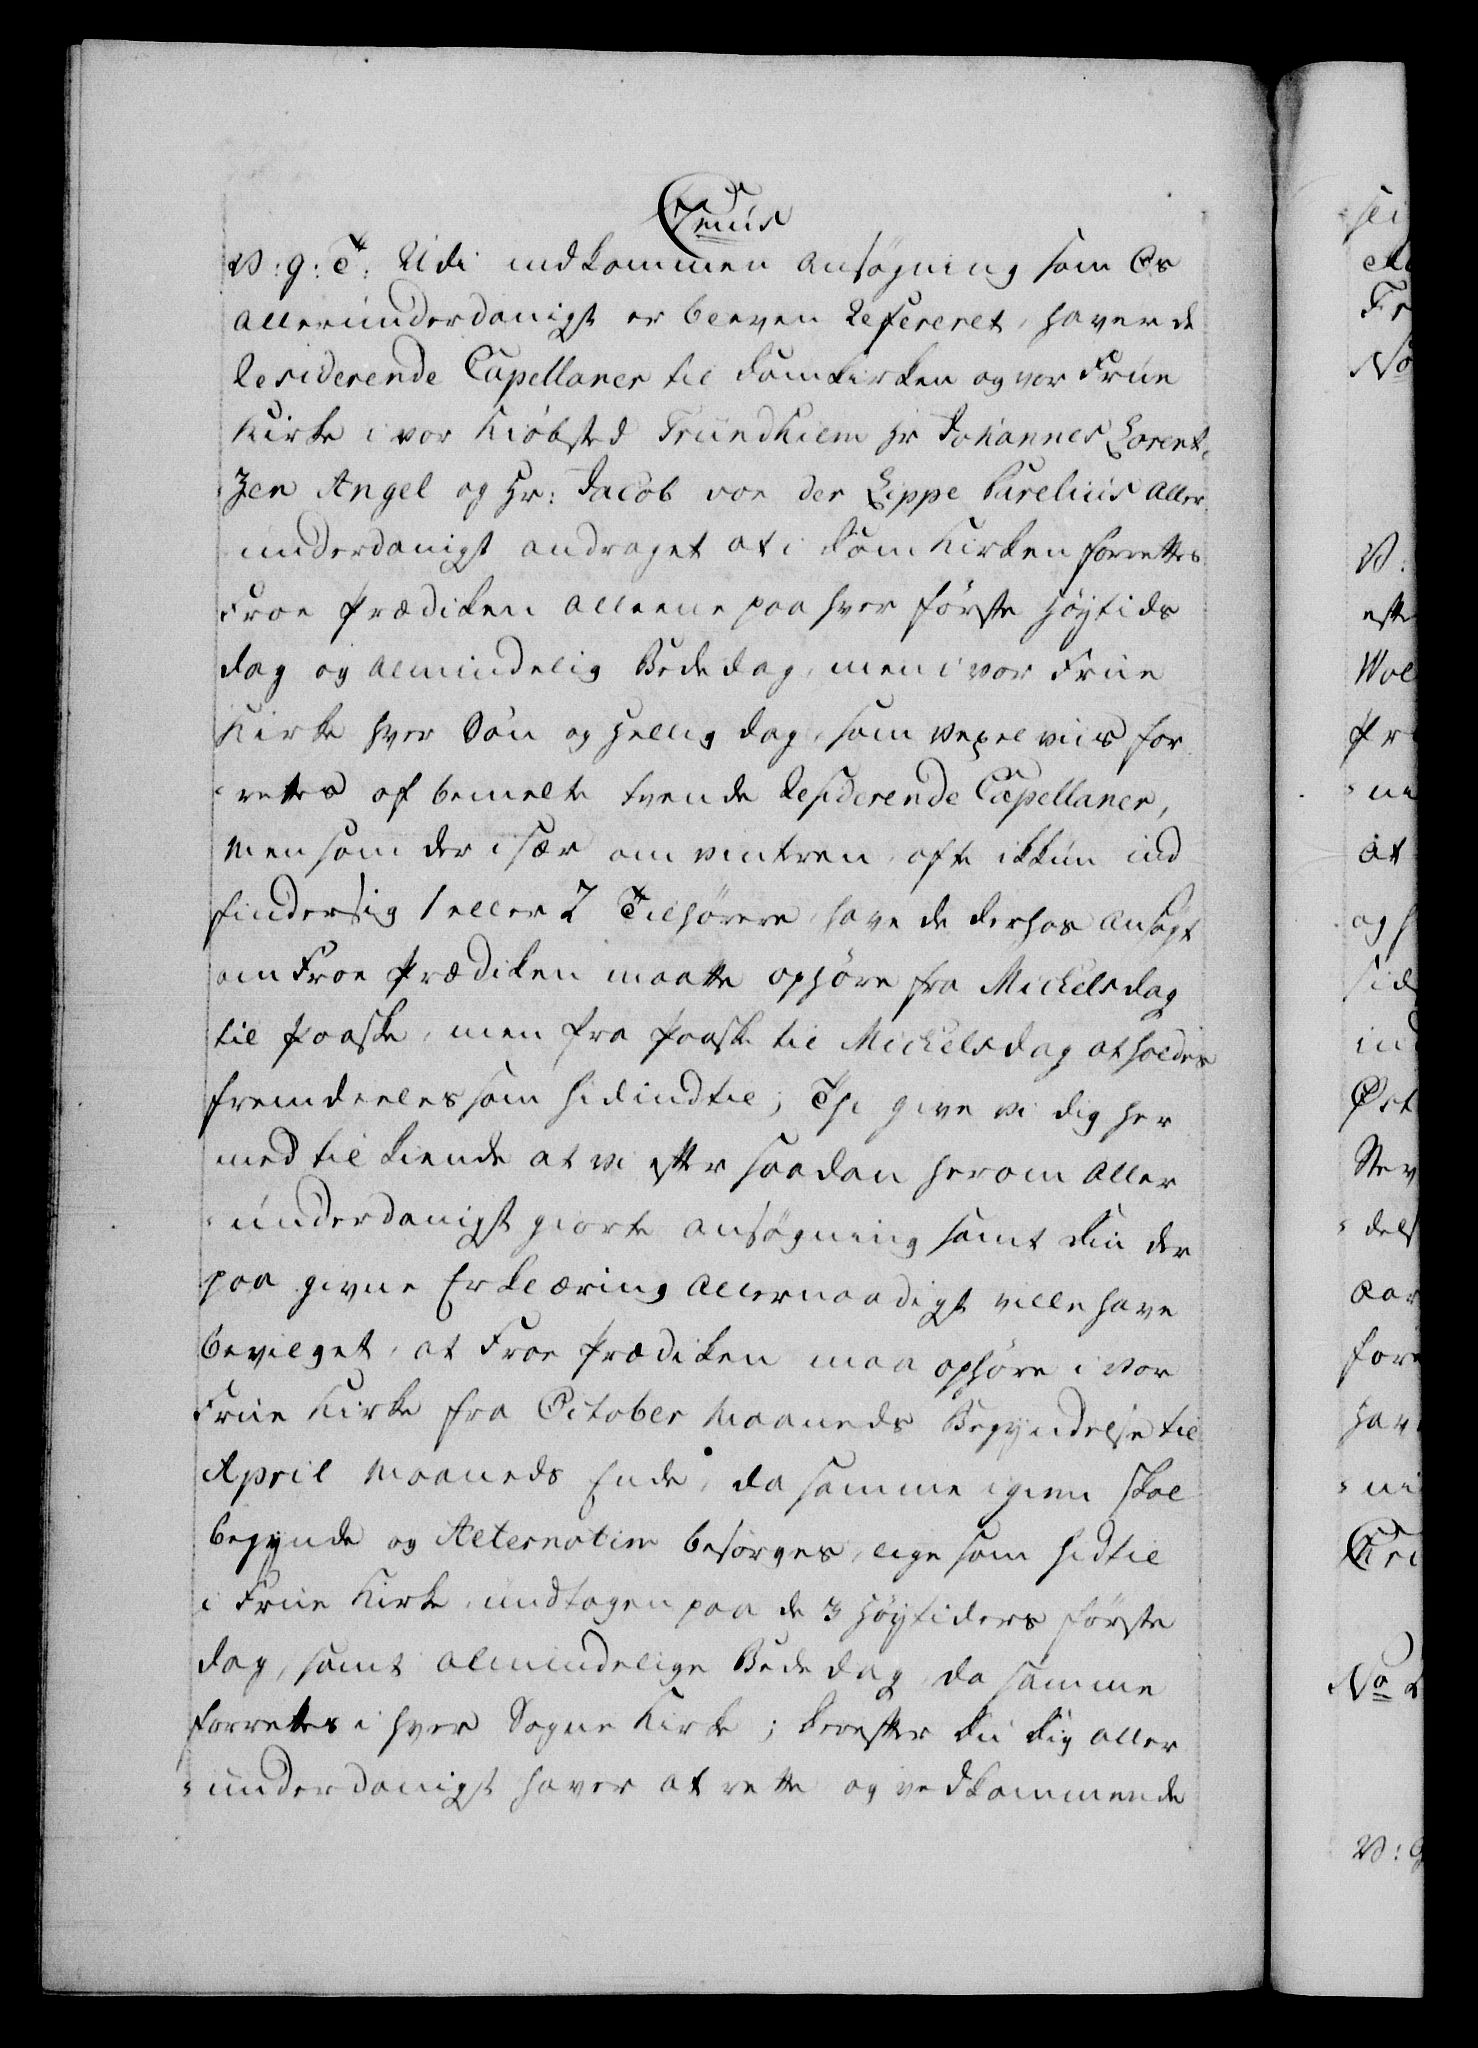 V: g: T: Udi indkommen Ansøgning som Os
allerunderdanigst er bleven Refereret, haver de
Residerende Capellaner til Domkirken og vor Frue
Kirke i vor Kiøbsted Trundhiem Hr Johannes Lorent-
zen Angel og Hr: Jacob von der Lippe Parelius Aller
underdanigst andraget at i Dom Kirken forrettes
Froe Prædiken alleene paa hver første Høytids
dag og almindelig Bededag, men i vor Frue
Kirke hver Søn og Hellig dag, som vexelviis for
rettes af bemelte tvende Residerende Capellaner,
Men som der især om vintren ofte ikkun ind
finder sig 1 eller 2 Tilhørere, have de derhos ansøgt
om Froe Prædiken maatte ophøre fra Michelsdag
til Paaske, men fra Paaske til Michelsdag at holdes
fremdeeles som hidindtil; Thi give vi dig her
med til kiende at vi efter saadan herom Aller
underdanigst giorte ansøgning samt din der
paa givne Erklæring allernaadigst ville have
bevilget, at Froe Prædiken maa ophøre i vor
Frue Kirke fra October Maaneds Begyndelse til
April Maaneds Ende, da samme igien skal
begynde og Alternatim besørges, lige som hidtil
i Frue Kirke undtagen paa de 3 Høytiders første
dag, samt almindelige Bededag, da samme
forrettes i hver Sogne Kirke; derefter du dig aller
underdanigst haver at rette og vedkommende